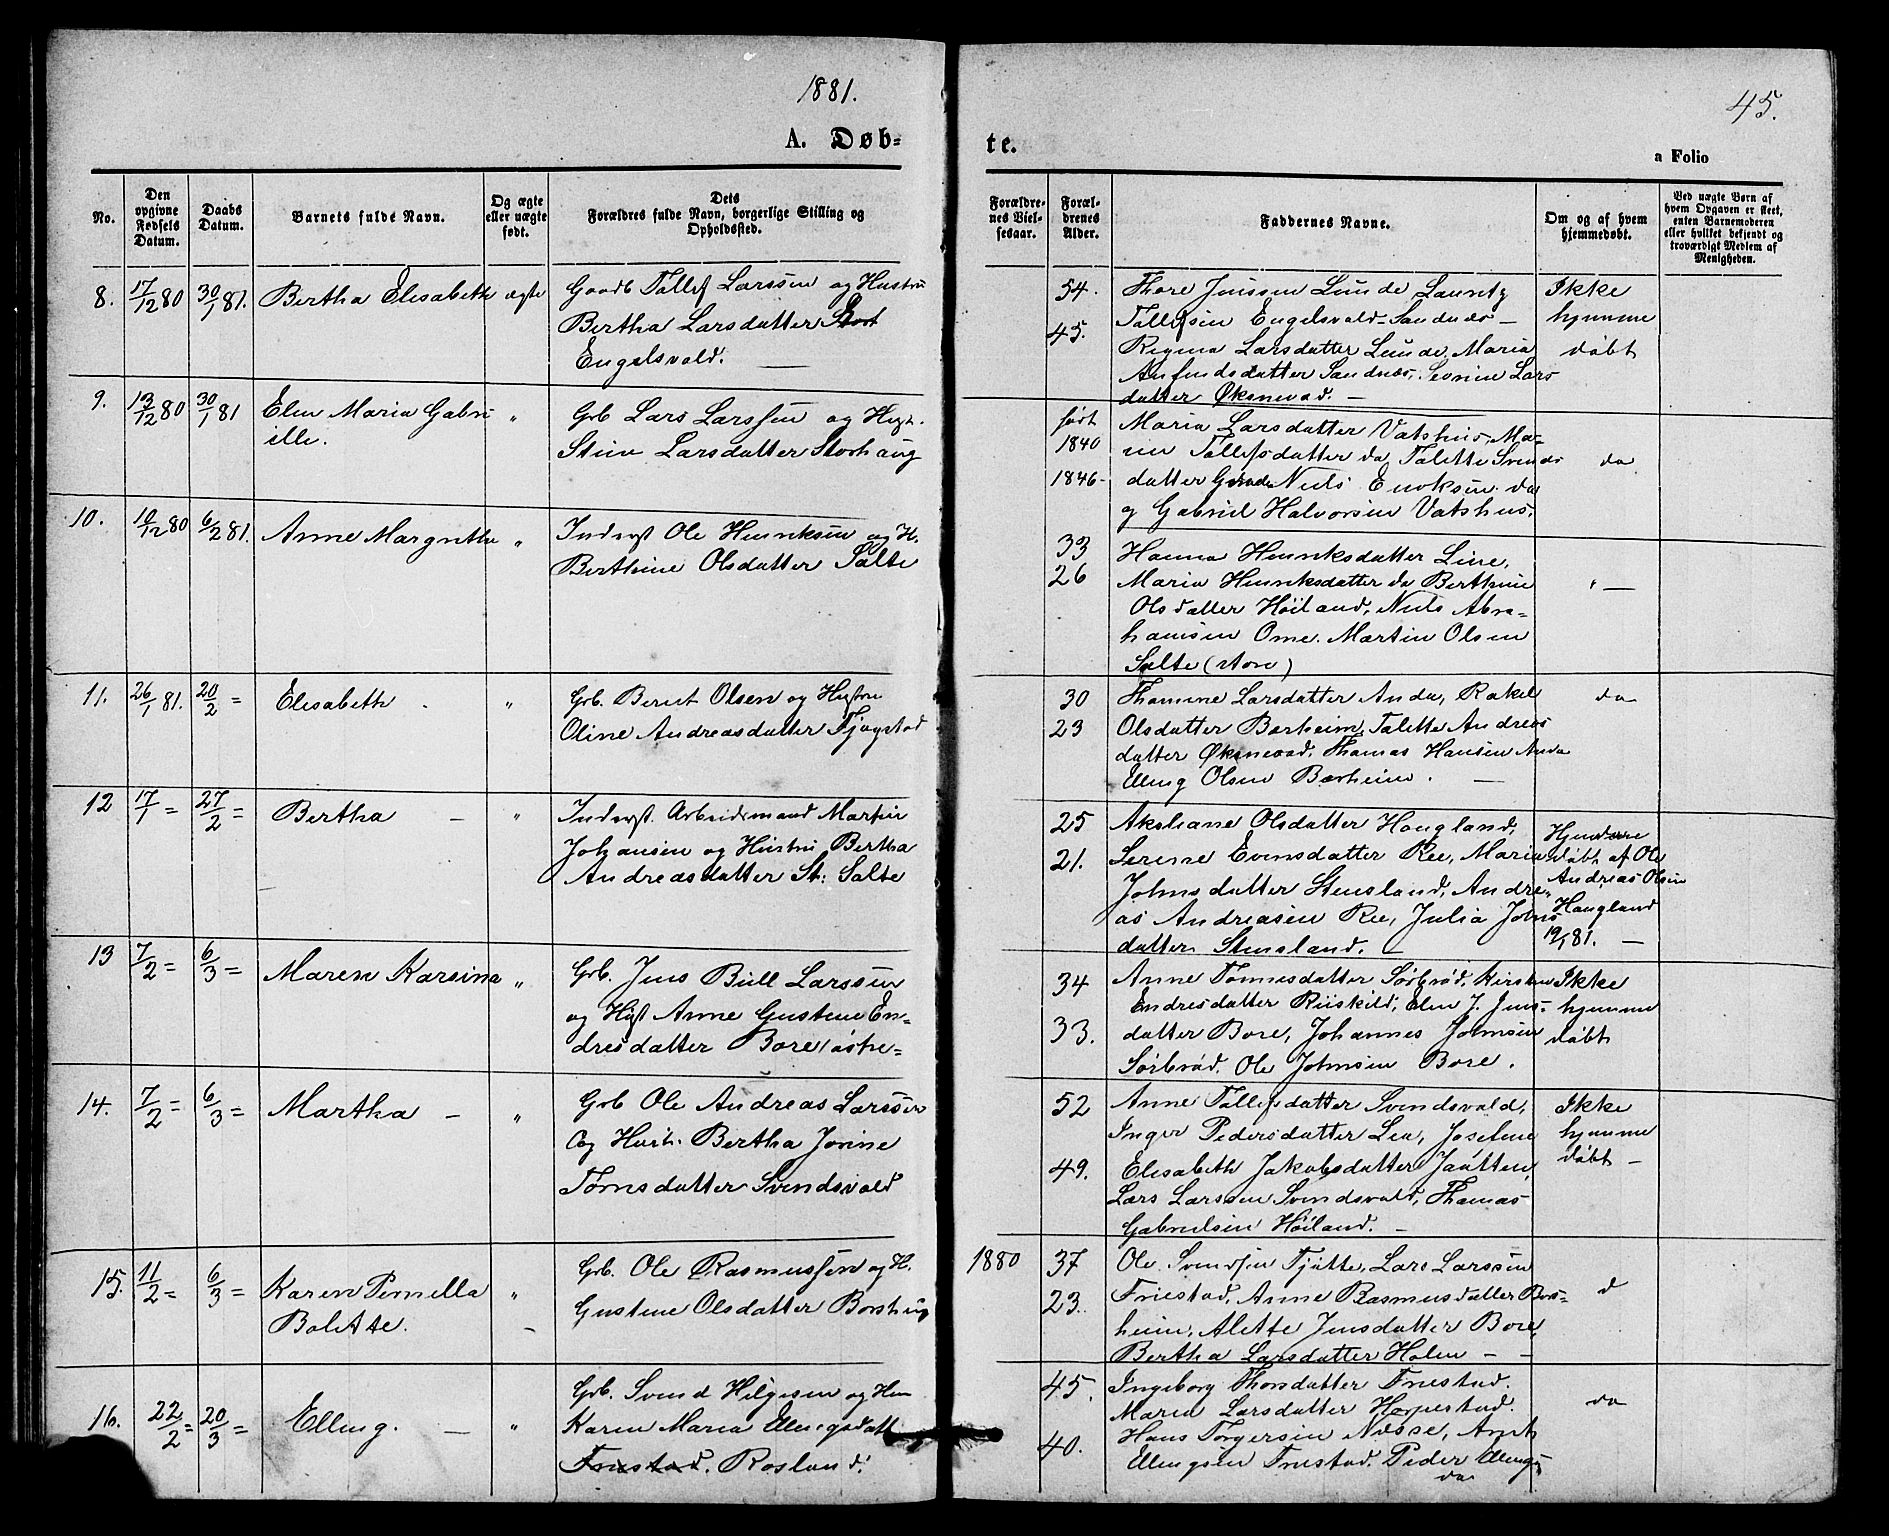 1881.
45.
A. Døb-
te.
a Folio
No.
Den opgivne Fødsels Datum.
Daabs Datum.
Barnets fulde Navn.
Og ægte eller uægte født.
Dets Forældres fulde Navn, borgerlige Stilling og Opholdssted.
Forældrenes Vielsesaar.
Forældrenes Alder.
Faddernes Navne.
Om og af hvem hjemmedøbt.
Ved uægte Børn af hvem Opgaven er skeet, enten Barnemoderen eller hvilket bekjendt og troværdigt Medlem af Menigheden.
8. 17/12 80 30/1 81. Bertha Elisabeth ægte Gaardb Tollef Larssen og Hustru
Bertha Larsdatter
Engelsvold. —
54.
45.
Thore Jenssen Lunde, Lauritz
Tollefsen Engelsvold - Sandnes —
Regina Larsdatter Lunde, Maria
Anfindsdatter Sandnes, Sevrine Lars
datter Øksnevad. —
Ikke
hjemme
døbt
9. 13/12 80 30/1 81 Elen Maria Gabri
elle.
" Grb Lars Larssen og Hust.
Stine Larsdatter Storhaug
født
1840
1846-
Maria Larsdatter Vatshus, Ma-
rin Tollefsdatter do, Talette Svends
datter Niels Enoksen do
og Gabriel Halvorsen Vatshus.
do
10. 10/12 80 6/2 81. Anne Margrethe " Inderst Ole Henriksen og H.
Berthine Olsdatter Salte
33
26
Hanna Henriksdatter Line,
Maria Henriksdatter do Berthine
Olsdatter Høiland, Niels Abra-
hamsen Ome. Martin Olsen
Salte (store)
" —
11. 26/1 81. 20/2 = Elisabeth . " Grb. Berent Olsen og Hustru
Oline Andreasdatter Tjøgstad
30
23
Thomine Larsdatter Anda, Rakel
Olsdatter Borheim, Talette Andreas
datter Øksnevad, Thomas Hansen Anda
Elling Olsen Borheim. —
do
12 17/1 = 27/2 = Bertha — " Inderst. Arbeidsmand Martin
Johansen og Hustru Bertha
Andreasdatter St: Salte
25
21.
Akseliane Olsdatter Haugland,
Serene Evensdatter Ree, Maria
Johnsdatter Stensland, Andre-
as Andreasen Ree, Julia Johns
datter Stensland. —
Hjemme
døbt af Ole
Andreas Olsen
Haugland
19/1 81. —
13 7/2 = 6/3 = Maren Karsina " Grb. Jens Bull Larssen
og Hust Anne Gustine En-
dresdatter Bore østre-
34
33.
Anne Tønnesdatter Sørbrød, Kirsten
Endresdatter Riiskild, Elen J. Jens-
datter Bore, Johannes Johnsen
Sørbrød. Ole Johnsen Bore.
Ikke
hjemme
døbt
14. 7/2 = 6/3 = Martha — " Grb Ole Andreas Larssen
Og Hust. Bertha Jorine
Tørresdatter Svendsvold
52
49.
Anne Tollefsdatter Svendsvold,
Inger Pedersdatter Lea, Josefine
Elisabeth Jakobsdatter Jaatten,
Lars Larssen Svendsvold, Thomas
Gabrielsen Høiland. —
Ikke
hjemme
døbt —
15. 11/2 = 6/3 = Karen Pernella
Bolette.
" Grb. Ole Rasmussen og H.
Gustine Olsdatter Borsheig
1880 37
23.
Ole Svendsen Tjøtte, Lars Larssen
Friestad, Anne Rasmusdatter Bors-
heim, Alette Jensdatter Bore,
Bertha Larsdatter Holen — —
d
16. 22/2 = 20/3 = Elling. — " Grb. Svend Helgesen og Hu
Karen Maria Ellingsdatt
Friestad. Rosland.
45.
40.
Ingeborg Thorsdatter Friestad.
Maria Larsdatter Horpestad.
Hans Torgersen Næsse, Arnt
Ellingsen Friestad. Peder Ellings
do
do